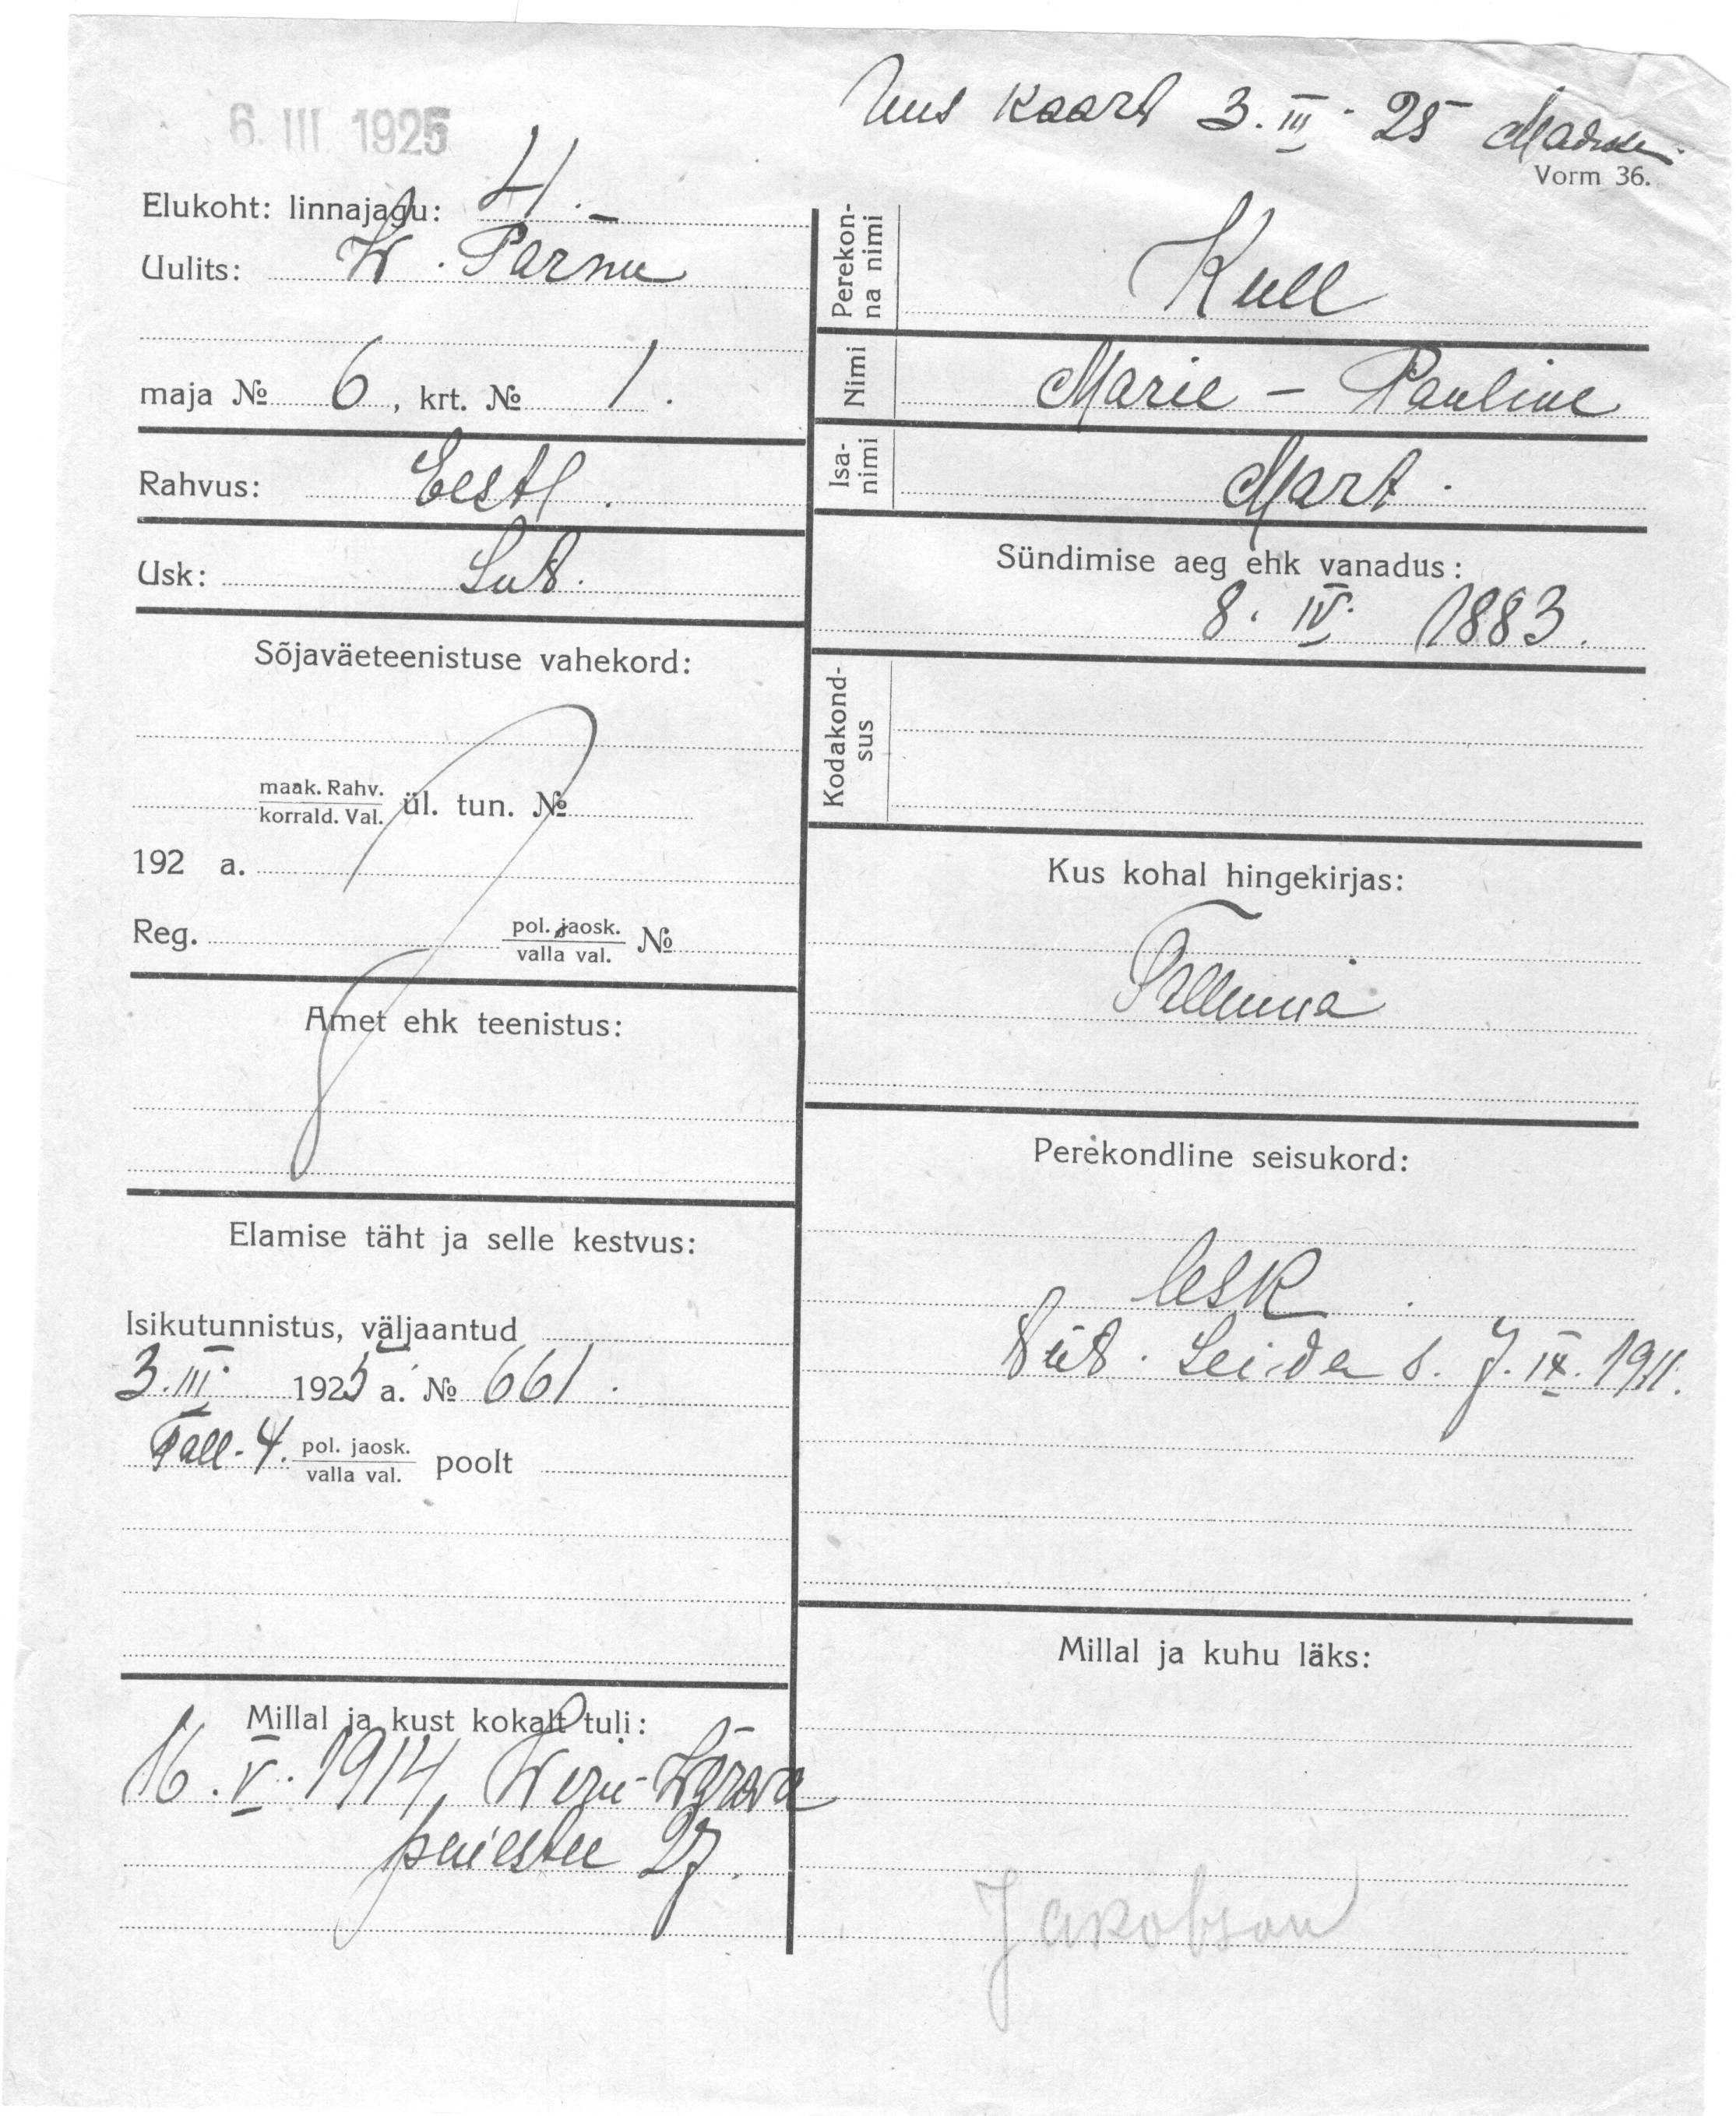 6. III 1925
Uus kaart 3. III. 25
Vorm 36.
Elukoht: linnajagu: 4. –
Uulits: W. Pärnu
maja № 6, krt. № 1.
Rahvus: Eestl.
Usk: Lut.
Sõjaväeteenistuse vahekord:
maak. Rahv.
korrald. Val. ül. tun. №
192 a.
Reg. pol. jaosk.
valla val. №
Amet ehk teenistus:
Elamise täht ja selle kestvus:
Isikutunnistus, väljaantud
3. III. 1925 a. № 661.
Tall. 4. pol. jaosk.
valla val. poolt
Millal ja kust kohalt tuli:
16. V. 1914, Weru-Wärava
puiestee 27.
Perekon-
na nimi Kull
Nimi Marie – Pauline
Isa-
nimi Mart.
Sündimise aeg ehk vanadus:
8. IV. 1883.
Kodakond-
sus
Kus kohal hingekirjas:
Tallinna
Perekondline seisukord:
lesk.
tüt. Leida s. 7. IX. 1911.
Millal ja kuhu läks:
Jakobson